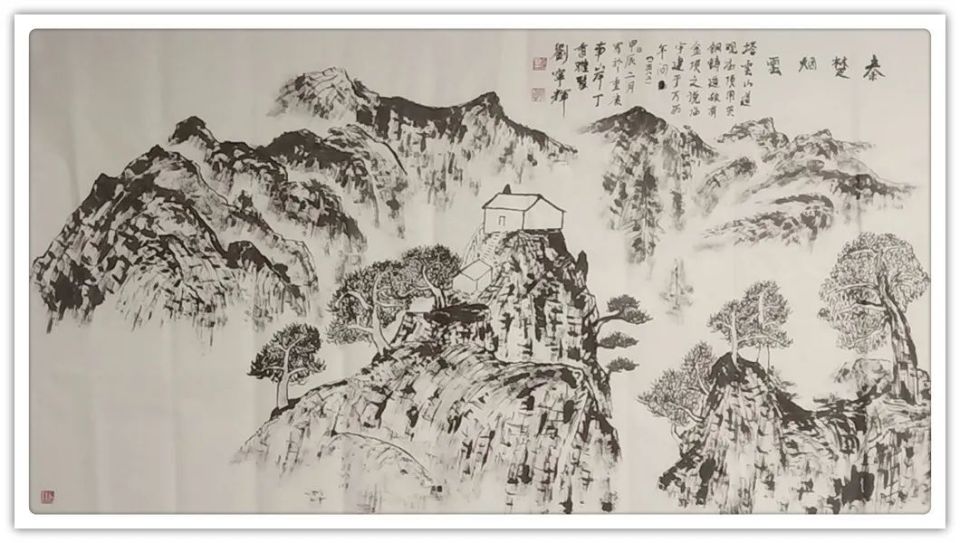 秦楚烟雲
塔雲山道
观顶用黄
铜铸造故有
金顶之说
宇建于万历
年间
甲辰二月
写於重庆
南岸丁
香雅墅
劉寧輝